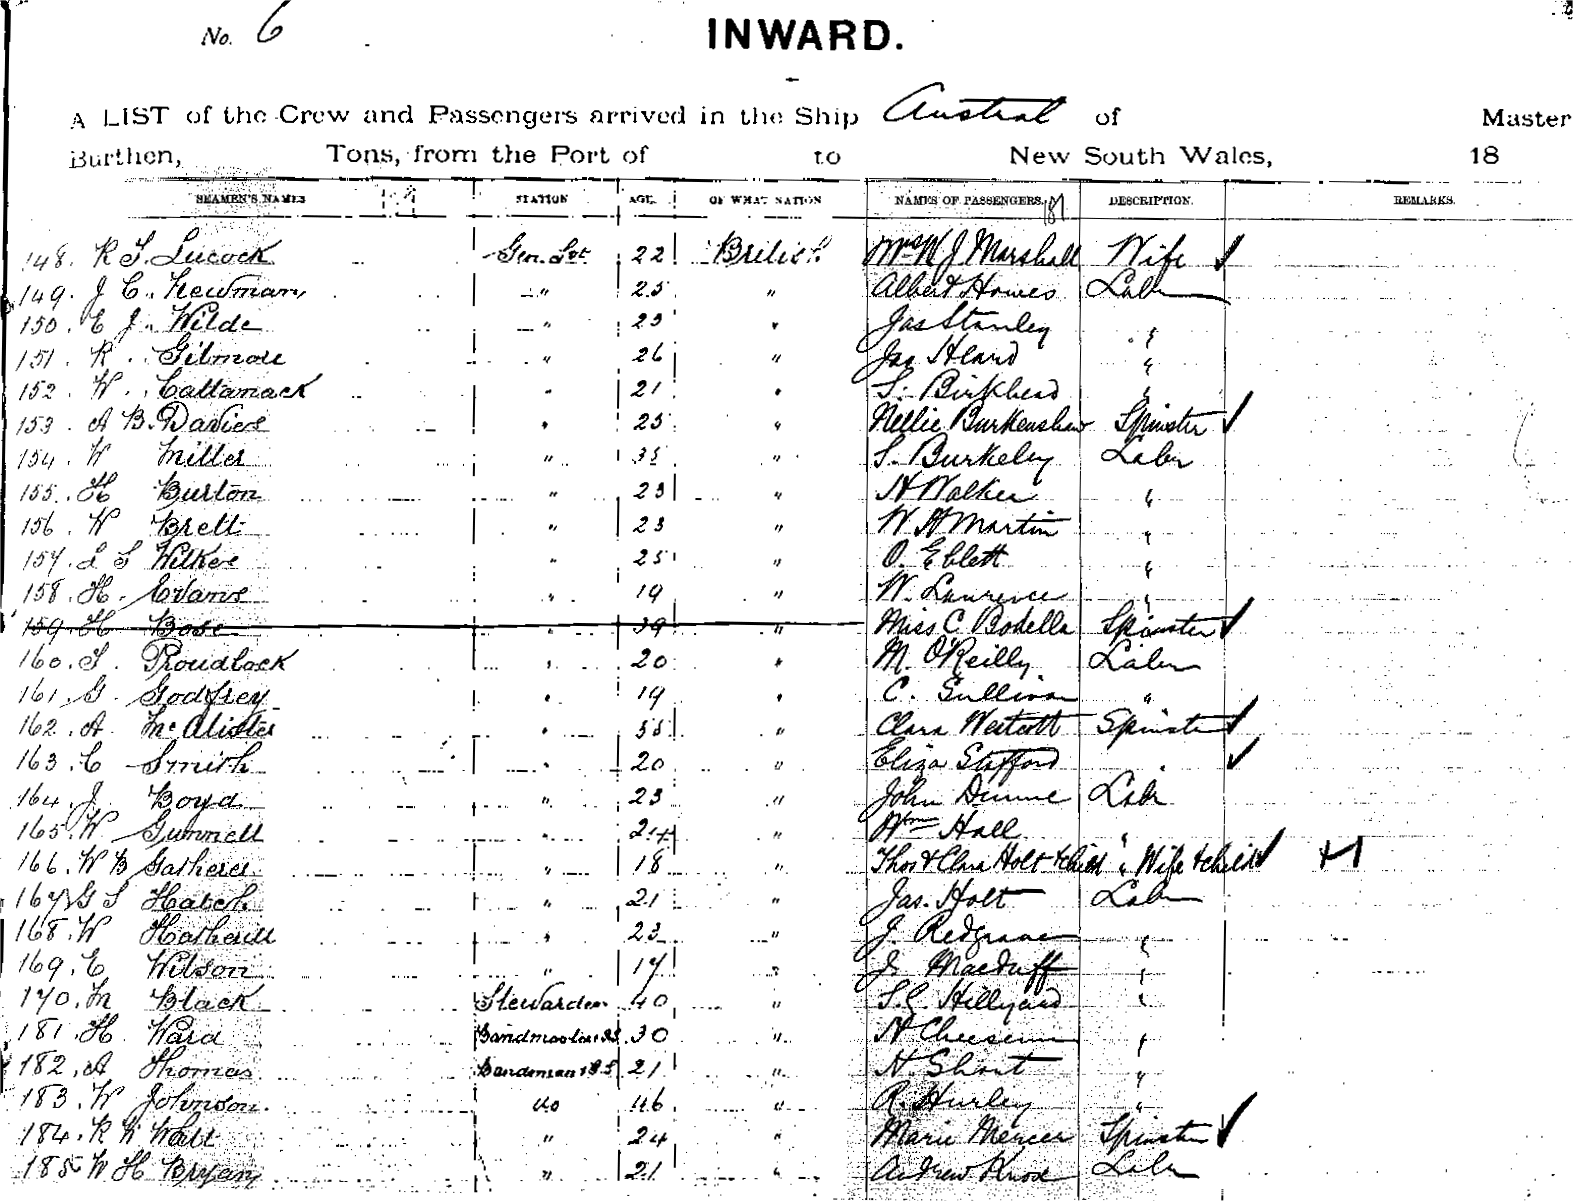 No. 6
INWARD.
A LIST of the Crew and Passengers arrived in the Ship Austral of Master
Burthen, Tons, from the Port of to New South Wales, 18
SEAMEN'S NAMES STATION AGE OF WHAT NATION NAMES OF PASSENGERS. DESCRIPTION. REMARKS.
148. R S. Lucock Gen. Svt. 22 British Mrs W J Marshall Wife ✓
149. J C. Newman " 25 " Albert Howes Labr
150. E J. Wilde " 23 " Jas Stanley "
151. R. Gilmore " 26 " Jas Heard "
152. W. Cattanack " 21 " S. Birkhead "
153. A B. Davies " 25 " Nellie Burkenshaw Spinster ✓
154. W Miller " 35 " S. Burkeley Labr
155. H Burton " 23 " H Walker "
156. W Brett " 23 " W. H Martin "
157. L S Wilkes " 25 " O. Eblett "
158. H. Evans " 19 " W. Lawrence "
159. H Bose " 39 " Miss C. Bodella Spinster ✓
160. S. Proudlock " 20 " M. O'Reilly Labr
161. G. Godfrey " 19 " C. Sullivan "
162. A McAlister " 35 " Clara Westcott Spinster ✓
163. C Smith " 20 " Eliza Stafford " ✓
164. J. Boyd " 23 " John Dunne Labr
165. W Gunnell " 24 " Wm Hall "
166. W B Gatherer " 18 " Thos & Clara Holt & child " Wife & child ✓
167. G S Hatch " 21 " Jas. Holt Labr
168. W Hatherill " 23 " J. Redgrave "
169. E Wilson " 17 " J. Macduff "
170. M Black Stewardess 40 " S. G. Hillyard "
181. H Ward Bandmaster 30 " H Cheeseman "
182. A Thomas Bandsman 21 " H. Short "
183. W Johnson. do 46 " R. Hurley "
184. R W Watt " 24 " Marie Mercer Spinster ✓
185 W H Bryan " 21 " Andrew Knox Labr